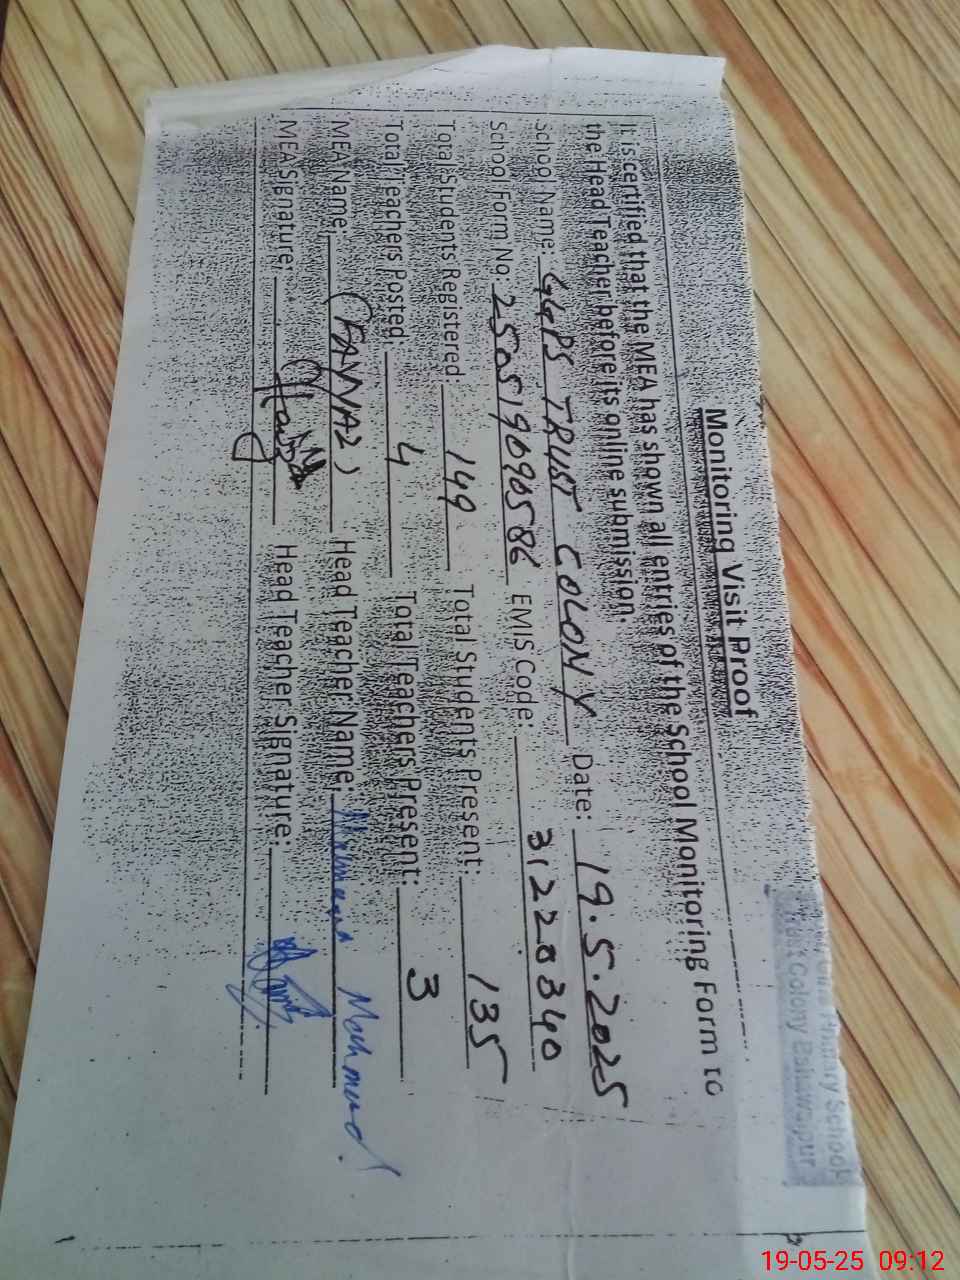 Primary School
Trust Colony Bahawalpur
Monitoring Visit Proof
It is certified that the MEA has shown all entries of the School Monitoring Form to
the Head Teacher before its online submission.
School Name: GGPS TRUST COLONY Date: 19.5.2025
School Form No. 250519090586 EMIS Code: 31220340
Total Students Registered: 149 Total Students Present: 135
Total Teachers Posted: 4 Total Teachers Present: 3
MEA Name: (FAYYAZ) Head Teacher Name:
MEA Signature: Head Teacher Signature:
19-05-25 09:12